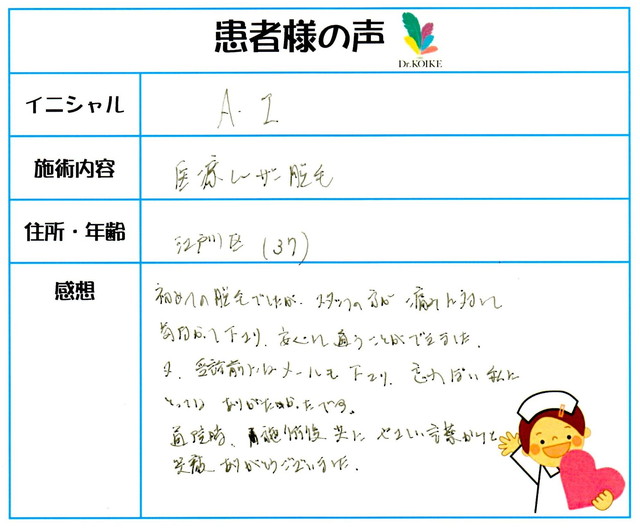 患者様の声
Dr.KOIKE
イニシャル A. I
施術内容 医療レーザー脱毛
住所・年齢 江戸川区 (37)
感想
初めての脱毛でしたが、スタッフの方が痛みに対して
毎回 下さり、安心して通うことができました。
又、予約前にはメールも下さり、忘れっぽい私に
とっては ありがたかったです。
通院時、施術後 共に やさしい言葉かけを
ありがとうございました。